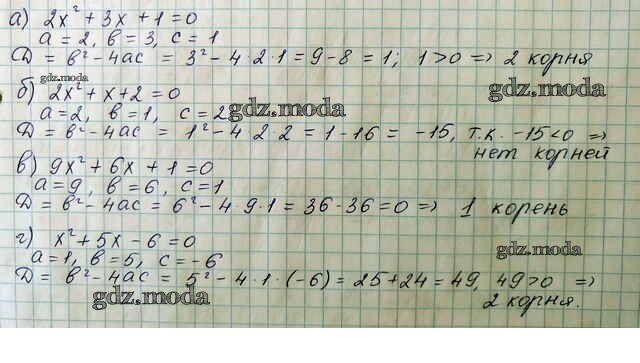 а) 2x² + 3x + 1 = 0
a = 2, b = 3, c = 1
D = b² - 4ac = 3² - 4 · 2 · 1 = 9 - 8 = 1; 1 > 0 => 2 корня
gdz.moda
gdz.moda
б) 2x² + x + 2 = 0
a = 2, b = 1, c = 2
gdz.moda
D = b² - 4ac = 1² - 4 · 2 · 2 = 1 - 16 = -15, т.к. -15 < 0 =>
нет корней
в) 9x² + 6x + 1 = 0
a = 9, b = 6, c = 1
D = b² - 4ac = 6² - 4 · 9 · 1 = 36 - 36 = 0 => 1 корень
г) x² + 5x - 6 = 0
gdz.moda
a = 1, b = 5, c = -6
D = b² - 4ac = 5² - 4 · 1 · (-6) = 25 + 24 = 49, 49 > 0 =>
gdz.moda
2 корня.